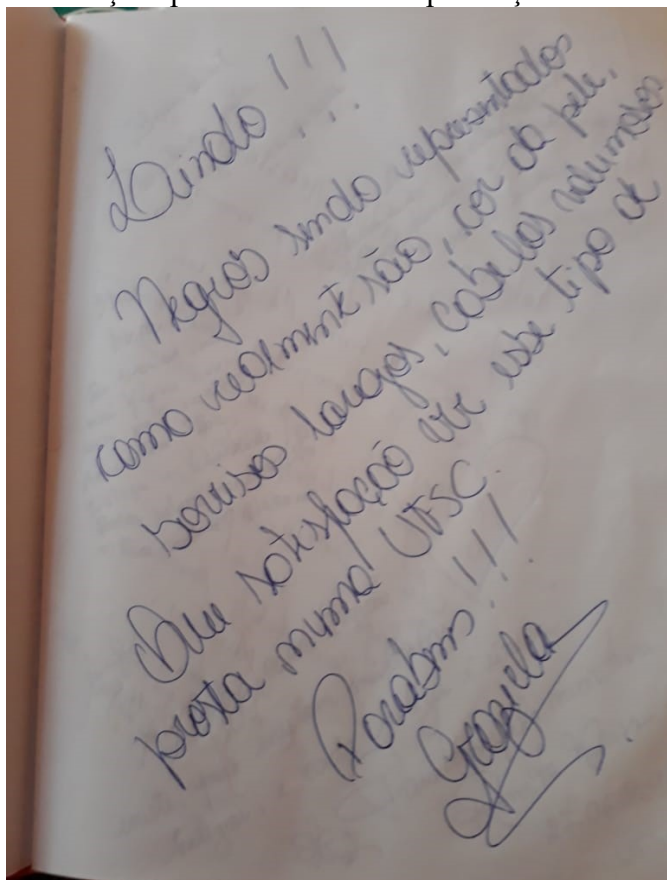 Lindo!!!
Negros sendo representados
como realmente são, cor da pele,
sorrisos largos, cabelos volumosos
Que satisfação ver esse tipo de
prosta numa UFSC.
Parabéns!!!
Graziela